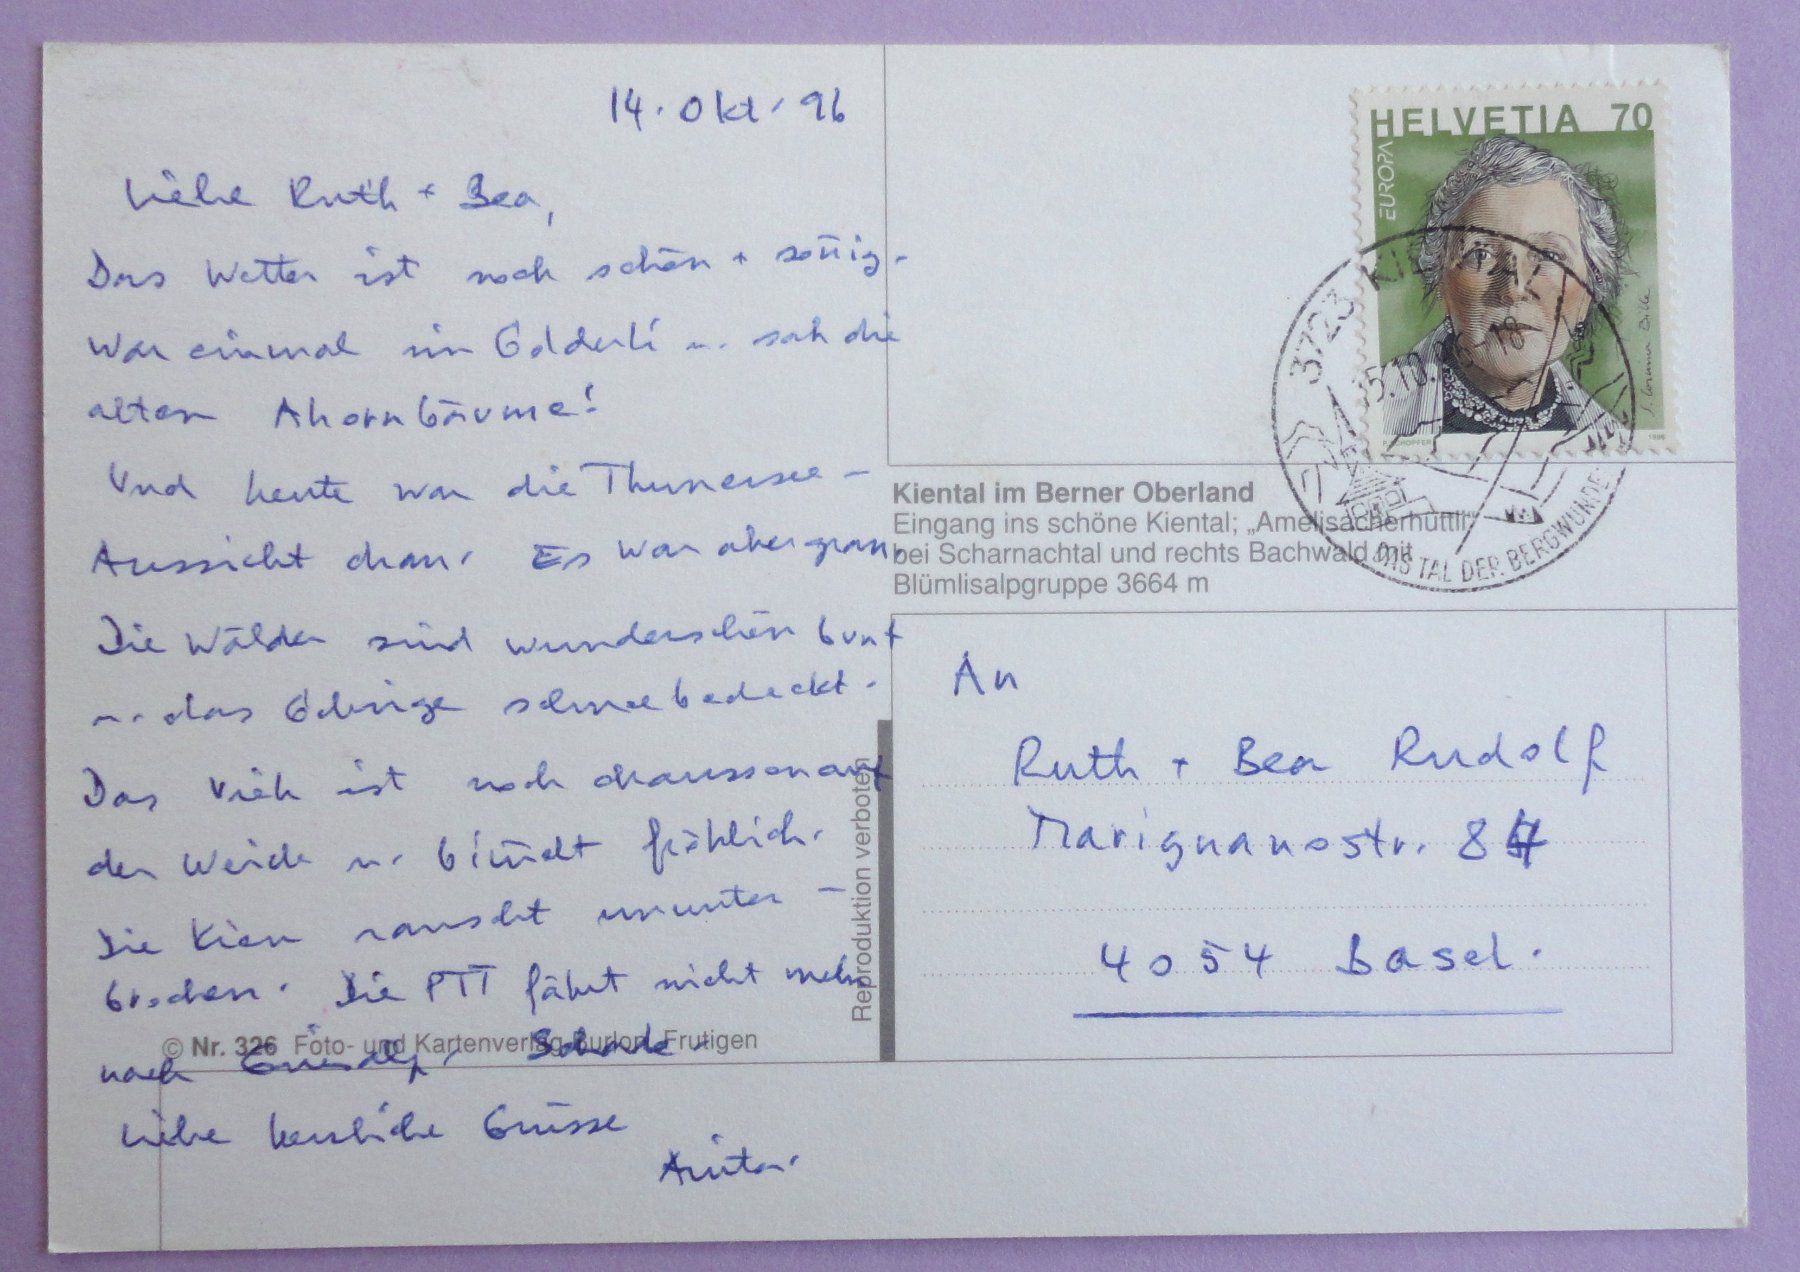 14. Okt. 96
Liebe Ruth + Bea,
Das Wetter ist noch schön + soñig.
War einmal im Golderli ... sah die
alten Ahornbäume!
Und heute war die Thunersee-
Aussicht dran. Es war aber grau.
Die Wälder sind wunderschön bunt
u. das Gebirge schneebedeckt.
Das Vieh ist noch draussen auf
der Weide u. bimmelt fröhlich.
Die Kien rauscht ununter-
brochen. Die PTT fährt nicht mehr
nach Griesalp. Schade.
Liebe herzliche Grüsse
Anita.
© Nr. 326 Foto- und Kartenverlag Burlon, Frutigen
Reproduktion verboten
HELVETIA 70
EUROPA
1996
3723
.10. 18
DAS TAL DER BERGWUNDER
Kiental im Berner Oberland
Eingang ins schöne Kiental; „Amelisacherhüttli"
bei Scharnachtal und rechts Bachwald mit
Blümlisalpgruppe 3664 m
An
Ruth + Bea Rudolf
Marignanostr. 84
4054 Basel.